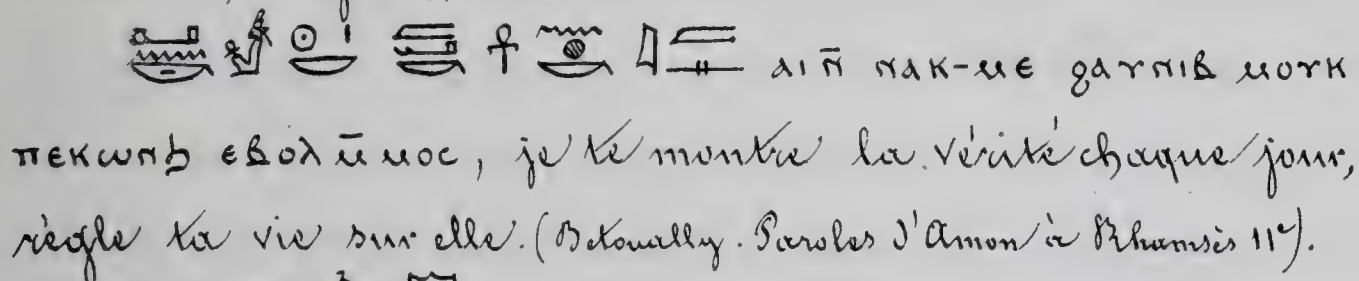 ⲁⲓⲛ̄ ⲛⲁⲕ-ⲙⲉ ϩⲁⲩⲛⲓⲃ ⲙⲟⲩⲕ
ⲡⲉⲕⲱⲛϧ ⲉⲃⲟⲗⲙ̄ⲙⲟⲥ, je te montre la vérité chaque jour,
règle ta vie sur elle. (Betoually. Paroles d'Amon à Rhamsès II<sup>e</sup>).